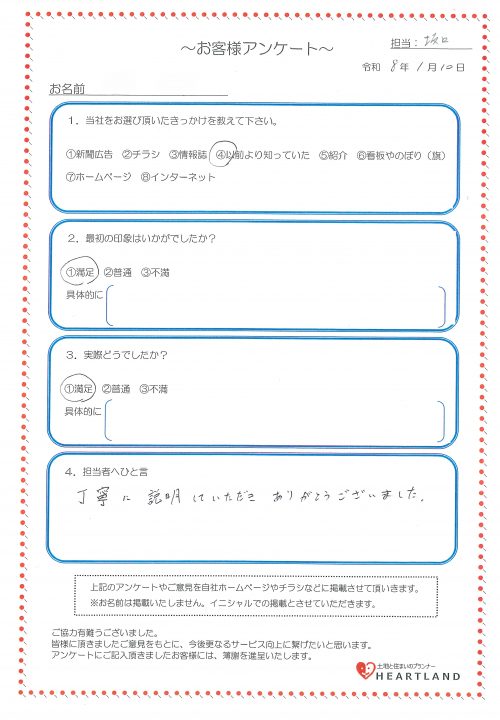 担当：坂口
～お客様アンケート～
令和 8年 1月10日
お名前
1．当社をお選び頂いたきっかけを教えて下さい。
①新聞広告 ②チラシ ③情報誌 ④以前より知っていた ⑤紹介 ⑥看板やのぼり（旗）
⑦ホームページ ⑧インターネット
2．最初の印象はいかがでしたか？
①満足 ②普通 ③不満
具体的に
3．実際どうでしたか？
①満足 ②普通 ③不満
具体的に
4．担当者へひと言
丁寧に説明していただきありがとうございました。
上記のアンケートやご意見を自社ホームページやチラシなどに掲載させて頂いきます。
※お名前は掲載いたしません。イニシャルでの掲載とさせていただきます。
ご協力有難うございました。
皆様に頂きましたご意見をもとに、今後更なるサービス向上に繋げたいと思います。
アンケートにご記入頂きましたお客様には、薄謝を進呈いたします。
土地と住まいのプランナー
HEARTLAND